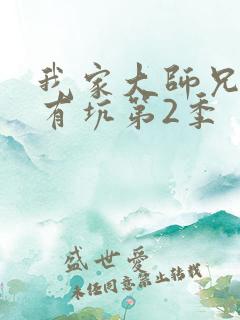 我家大师兄
有坑第2季
盛世爱
未经同意禁止转载